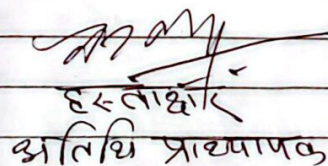 हस्ताक्षर
अतिथि प्राध्यापक